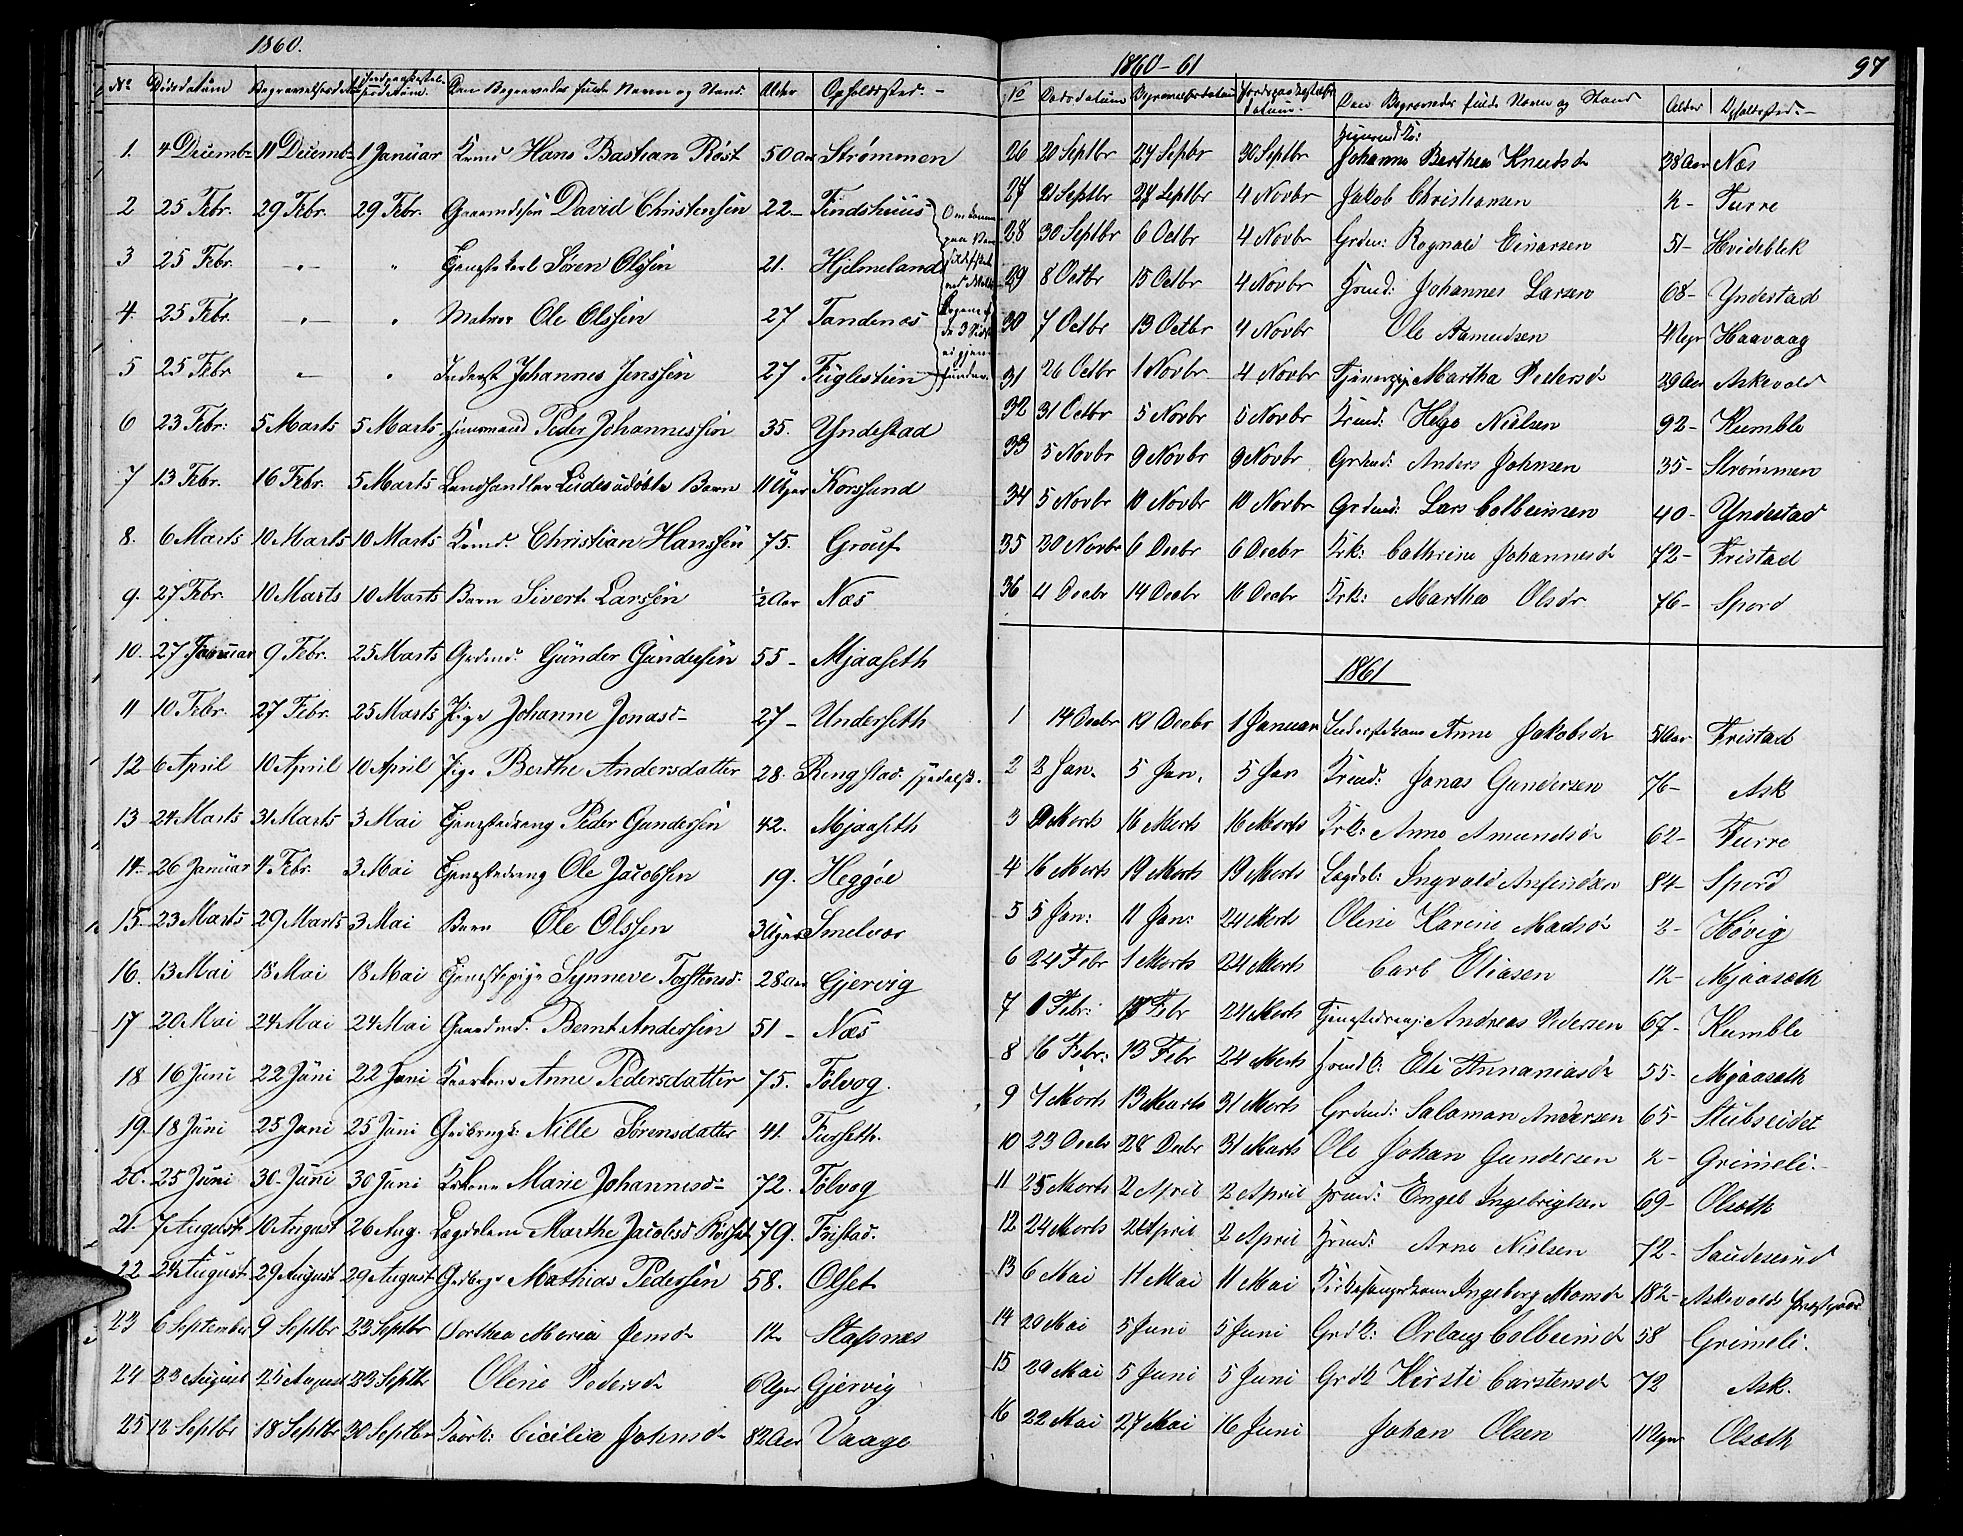 1860.
No Dødsdatum Begravelsesdat. Jordpaakastelsesdatum. Den Begravedes fulde Navn og Stand. Alder Opholdssted.-
1. 4 Decemb- 11 Decemb- 1 Januar Kmd Hans Bastian Röst 50 Aar Strømmen
2 25 Febr. 29 Febr. 29 Febr. Gaardmdssön David Christensen 22- Findshuus
3 25 Febr. -"- " Tjenstekarl Sören Olssen 21. Hjelmeland
4. 25 Febr. -"- " Matros Ole Olssen 27 Tandenæs
5 25 Febr - " Inderst Johannes Jenssen 27 Fuglestien
Omkomne paa
6 23 Febr: 5 Marts 5 Marts Huusmand Peder Johannessen 35. Yndestad
7 13 Febr. 16 Febr. 5 Marts Landhandler Lüders udöbte Barn 11 Uger Korssund
8. 6 Marts 10 Marts 10 Marts Kmd. Christian Hanssen 75. Grouf
9. 27 Febr. 10 Marts 10 Marts Barn Sivert Larssen ½ Aar Næs
10. 27 Januar 9 Febr. 25 Marts Grdmd. Günder Gundersen 55- Mjaaseth
11 10 Febr. 27 Febr. 25 Marts Pige Johanne Jonasd- 27- Underseth
12 6 April 10 April 10 April Pige Berthe Andersdatter 28. Ringstad. Fjedelsk.
13 24 Marts 31 Marts 3 Mai Tjenstedreng Peder Gundersen 42. Mjaaseth
14. 26 Januar 4 Febr. 3 Mai Tjenstedreng Ole Jacobsen 19. Heggöe
15. 23 Marts 29 Marts 3 Mai Barn Ole Olssen 3 Uger Smelvær
16. 13 Mai 18 Mai 18 Mai Tjenstepige Synneve Torstensd: 28 Aar Gjervig
17 20 Mai 24 Mai 24 Mai Gaardmd. Bernt Anderssen 51- Næs
18 16 Juni 22 Juni 22 Juni Kaarkone Anne Pedersdatter 75. Folvog.
19. 18 Juni 25 Juni 25 Juni Nille Sörensdatter 41. Furseth.
20. 25 Juni 30 Juni 30 Juni Krkone Marie Johannesd- 72. Folvog
21. 7 August 10 August 26 Aug. Lægdslem Marthe Jacobsd 79. Fristad.
22 24 August 29 August 29 August Mathias Pederssen 58. Olset
23 6 September 9 Septbr 23 Septbr Dorthea Maria Jensd 12 Stafsnæs
24 23 August 25 August 23 Septbr Oline Pedersd 6 Uger Gjervig
25 12 Septbr 18 Septbr 30 Septbr Kaark: Cicilia Johnsd 82 Aar Vaage
1860-61
97
No Dødsdatum Begravelsesdatum Jordpaakastelsesdatum. Den Begravedes fulde Navn og Stand Alder Opholdssted.-
26 20 Septbr 24 Sepbr 30 Septbr Johanne Berthea Knudsd 38 Aar Næs
27 21 Septbr 27 Septbr 4 Novbr Jakob Christiansen 2- Furre
28 30 Septbr 6 Octbr 4 Novbr Grdm: Rognald Einarsen 51- Hvideblik
29 8 Octbr 15 Octbr 4 Novbr Hmd: Johannes Larsen 68- Yndestad
30 7 Octbr 13 Octbr 4 Novbr Ole Aamundsen 4 Uger Haavaag
31 26 Octbr 1 Novbr 4 Novbr Tjenestepig Martha Pedersd 29 Aar Askevold
32 31 Octbr 5 Novbr 5 Novbr Krmd: Helge Nielsen 92- Humble
33 5 Novbr 9 Novbr 9 Novbr Grdmd: Anders Johnsen 35- Strømmen
34 5 Novbr 10 Novbr 10 Novbr Grdmd: Lars Colbeinsen 40- Yndestad
35 30 Novbr 6 Decbr 6 Decbr Krk: Cathrine Johannesd 72- Fristad
36 4 Decbr 14 Decbr 16 Decbr Krk: Martha Olsdr 76- Spord
1861
1 14 Decbr 19 Decbr 1 Januar Inderstekone Anne Jakobsd 51 Aar Fristad
2 2 Jan. 5 Jan. 5 Jan Krmd: Jonas Gundersen 76- Ask
3 9 Marts 16 Marts 16 Marts Krk: Anne Amundsd 62- Furre
4 16 Marts 19 Marts 19 Marts Lægdsl: Ingvold Anfindsen 84- Spord
5 5 Jan: 11 Jan: 24 Marts Oline Karine Madsd 2- Høvig
6 24 Febr 1 Marts 24 Marts Carl Eliasen 12- Mjaaseth
7 1 Febr: 17 Febr 24 Marts Tjenstedreng: Andreas Pedersen 67- Humble
8 16 Febr: 13 Febr 24 Marts Hmd k: Eli Annaniasd 55- Mjaaseth
9 7 Marts 13 Marts 31 Marts Grdmd: Salomon Andersen 65- Stubseidet
10 23 Decbr 28 Decbr 31 Marts Ole Johan Gundersen 2- Grimeli.-
11 25 Marts 2 April 2 April Hmd: Engel Ingebrigtsen 69- Olseth
12 24 Marts 2 April 2 April Hmd: Arne Nielsen 72- Saudesund
13 6 Mai 11 Mai 11 Mai Kirkesangerkone Ingeborg Monsd 82- Askevold
14 29 Mai 5 Juni 5 Juni Grdk: Orlaug Colbeinsd 58 Grimeli.
15 29 Mai 5 Juni 5 Juni Grdk Kirsti Carstensd 72 Ask.
16 22 Mai 27 Mai 16 Juni Johan Olsen 11 Uger Olseth